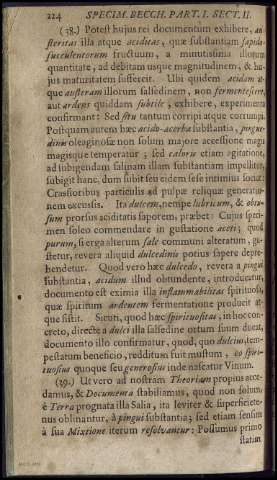 224 SPECIM. BECCH. PART. I. SECT. II.
(38.) Potest hujus rei documentum exhibere, au-
steritas illa atque aciditas, quæ substantiam sapido-
succulentorum fructuum, a minutissima illorum
quantitate, ad debitam usque magnitudinem, & hu-
jus maturitatem suffecit. Ubi quidem acidam at-
que austeram illorum salsedinem, non fermentescere,
aut ardens quiddam subtile, exhibere, experimenta
confirmant: Sed situ tantum corripi atque corrumpi.
Postquam autem hæc acido-acerba substantia, pingue-
dinis oleaginosæ non solum majore accessione magis
magisque temperatur; sed caloris etiam agitatione,
ad subigendam salinam illam substantiam impulsus,
subigit hanc, dum subit seu eidem sese intimius sociat:
Crassioribus particulis ad pulpæ reliquæ generatio-
nem excussis. Ita dulcem, nempe lubricum, & obtu-
sum prorsus aciditatis saporem, præbet: Cujus speci-
men soleo commendare in gustatione aceti; quod
purum, si erga alterum sale communi alteratum, ga-
stetur, revera aliquid dulcedinis potius sapere depre-
hendetur. Quod vero hæc dulcedo, revera a pingui
substantia, acidum illud obtundente, introducatur,
documento est eximia illa inflammabilitas spirituosa,
quæ spiritum ardentem fermentatione producit at-
que sistit. Sicuti, quod hæc spirituositas, in hoc con-
creto, directe a dulci illa salsedine ortum suum ducat,
documento illo confirmatur, quod, quo dulcius, tem-
pestatum beneficio, redditum fuit mustum, eo spiri-
tuosius quinque seu generosius inde nascatur Vinum.
(39.) Ut vero ad nostram Theoriam propius acce-
damus, & Documenta stabiliamus, quod non solum
è Terra prognata illa Salia, ita leviter & superficiete-
nus oblinantur, à pingui substantia; sed etiam sensim
à sua Mixtione iterum resolvantur: Possumus primo
statim